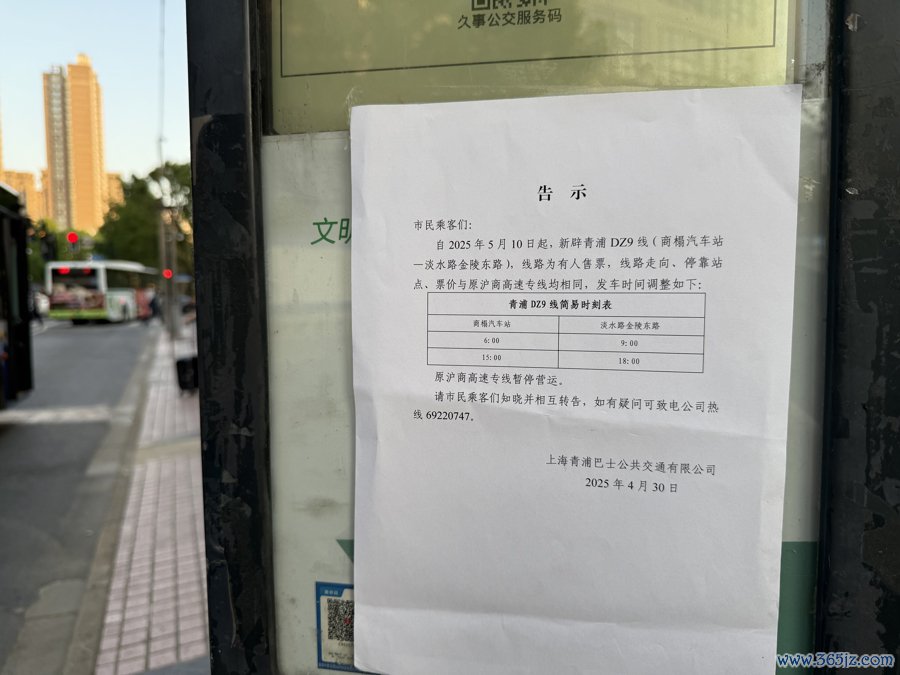 久事公交服务码
文明
告 示
市民乘客们：
自 2025 年 5 月 10 日起，新辟青浦 DZ9 线（商榻汽车站
—淡水路金陵东路），线路为有人售票，线路走向、停靠站
点、票价与原沪商高速专线均相同，发车时间调整如下：
青浦 DZ9 线简易时刻表
商榻汽车站 淡水路金陵东路
6：00 9：00
15：00 18：00
原沪商高速专线暂停营运。
请市民乘客们知晓并相互转告，如有疑问可致电公司热
线 69220747。
上海青浦巴士公共交通有限公司
2025 年 4 月 30 日
www.365jz.com